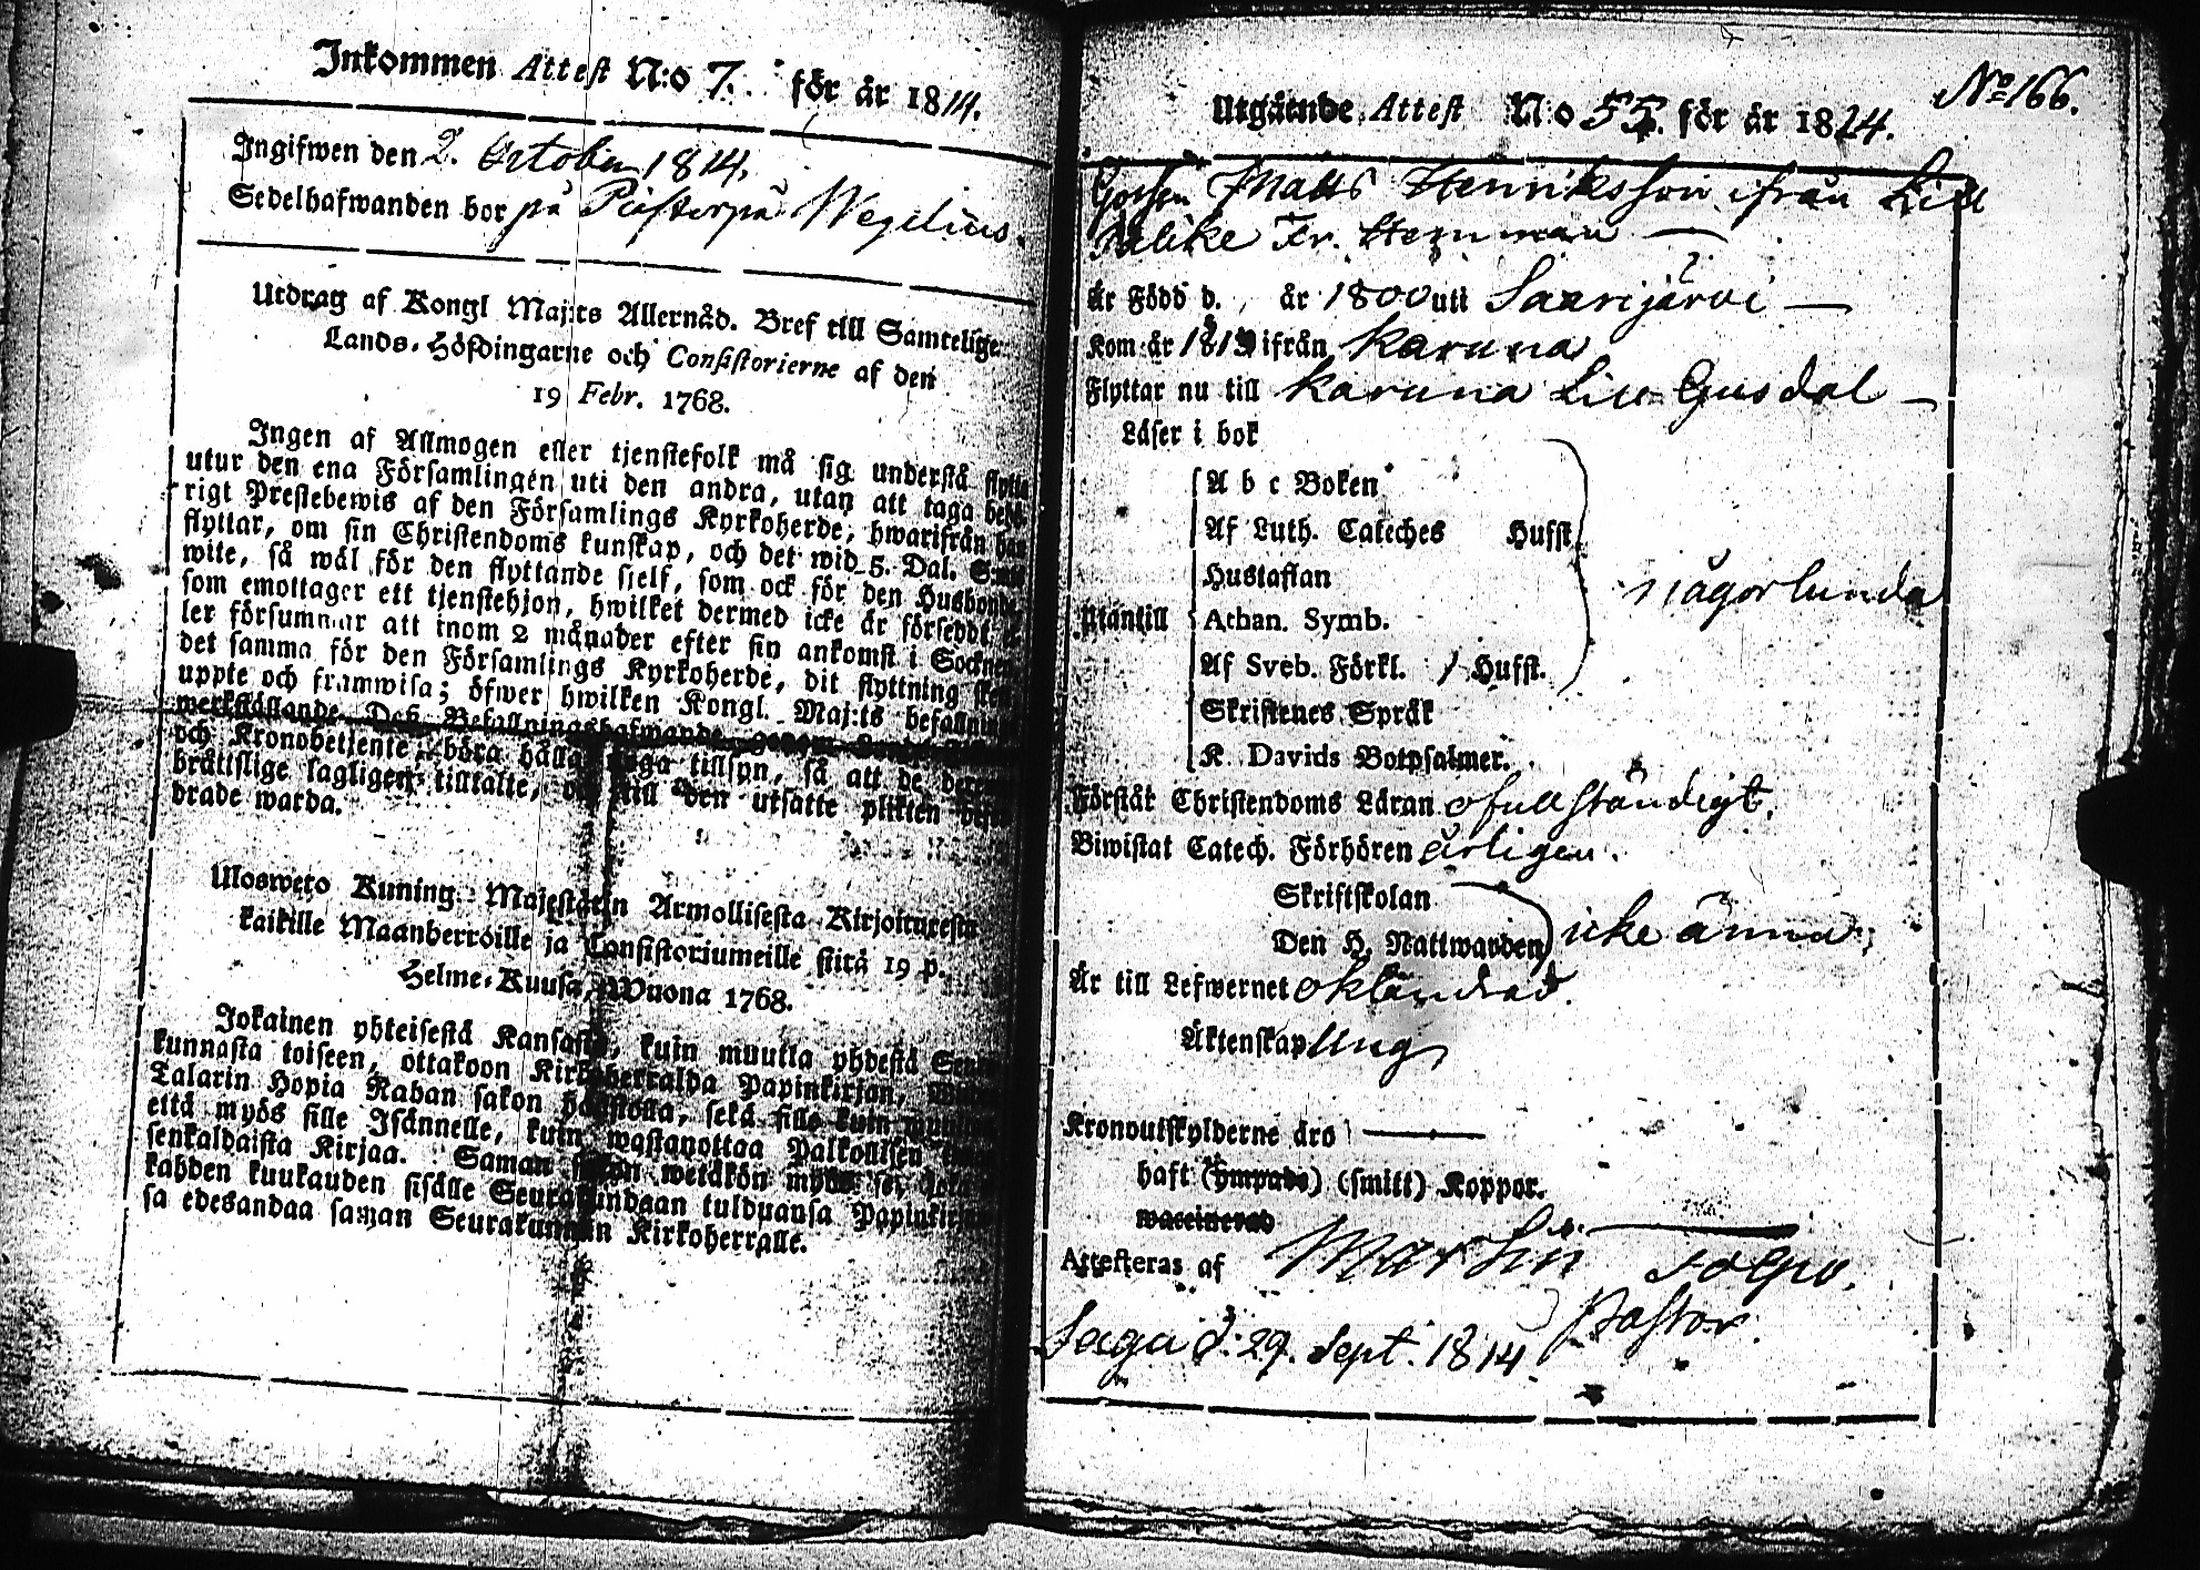 Inkommen Attest N:o 7. för år 1814.
Ingifwen den 2. October 1814.
Sedelhafwanden bor på Wegelius.
Utdrag af Kongl Maj:ts Allernåd. Bref till Samtelige
Lands-Höfdingarne och Consistorierne af den
19 Febr. 1768.
Ingen af Allmogen eller tjenstefolk må sig understå flytta
utur den ena Församlingen uti den andra, utan att taga behö-
rigt Prestebewis af den Församlings Kyrkoherde, hwarifrån han
flyttar, om sin Christendoms kunskap, och det wid 5. Dal. S:mt
wite, så wäl för den flyttande sjelf, som ock för den Husbonde,
som emottager ett tjenstehjon, hwilket dermed icke är försedt, el-
ler försummar att inom 2 månader efter sin ankomst i Socknen
det samma för den Församlings Kyrkoherde, dit flyttning sker,
uppte och framwisa; öfwer hwilken Kongl. Maj:ts befallning
werkställande Dess Befallningshafwande
och Kronobetjente, böra hålla noga tillsyn, så att de
bråttslige lagligen tilltalte, och till den utsatte plikten
drade warda.
Ulosweto Kuning. Majestätin Armollisesta Kirjoituxesta
kaikille Maanherroille ja Consistoriumeille siitä 19 p.
Helme-Kuusa, Wuona 1768.
Jokainen yhteisestä Kansasta, kuin muutta yhdestä Seura-
kunnasta toiseen, ottakoon Kirkoherralda Papinkirjan,
Talarin Hopia Rahan sakon haastolla, sekä sille kuin
että myös sille Isännelle, kuin wastanottaa Palkollisen
senkaldaista Kirjaa. Saman sakon wetäkön myös se,
kahden kuukauden sisälle Seurakundaan tulduansa Papinkirjan
sa edesandaa saman Seurakunnan Kirkoherralle.
No 166.
Utgående Attest N:o 55. för år 1814.
Gossen Matts Henriksson ifrån Lill
Fr. Hemman —
Är Född d. år 1800 uti Saarijärvi —
Kom år 1813 ifrån Karuna
Flyttar nu till Karuna Lill Gusdal —
Läser i bok
A b c Boken
Af Luth. Cateches Hufst.
Hustaflan
Utantill Athan. Symb. någorlunda
Af Sveb. Förkl. / Hufst.
Skriftenes Språk
K. Davids Botpsalmer.
Förstår Christendoms Läran ofullständigt.
Biwistat Catech. Förhören årligen.
Skriftskolan
Den H. Nattwarden icke ännu;
Är till Lefwernet oklandrad.
Äktenskap Ung
Kronoutskylderne äro —
haft (ympade) (smitt) Koppor.
waccinerad
Attesteras af Martin Tolpo.
Pastor.
Sagu d: 29. Sept. 1814.